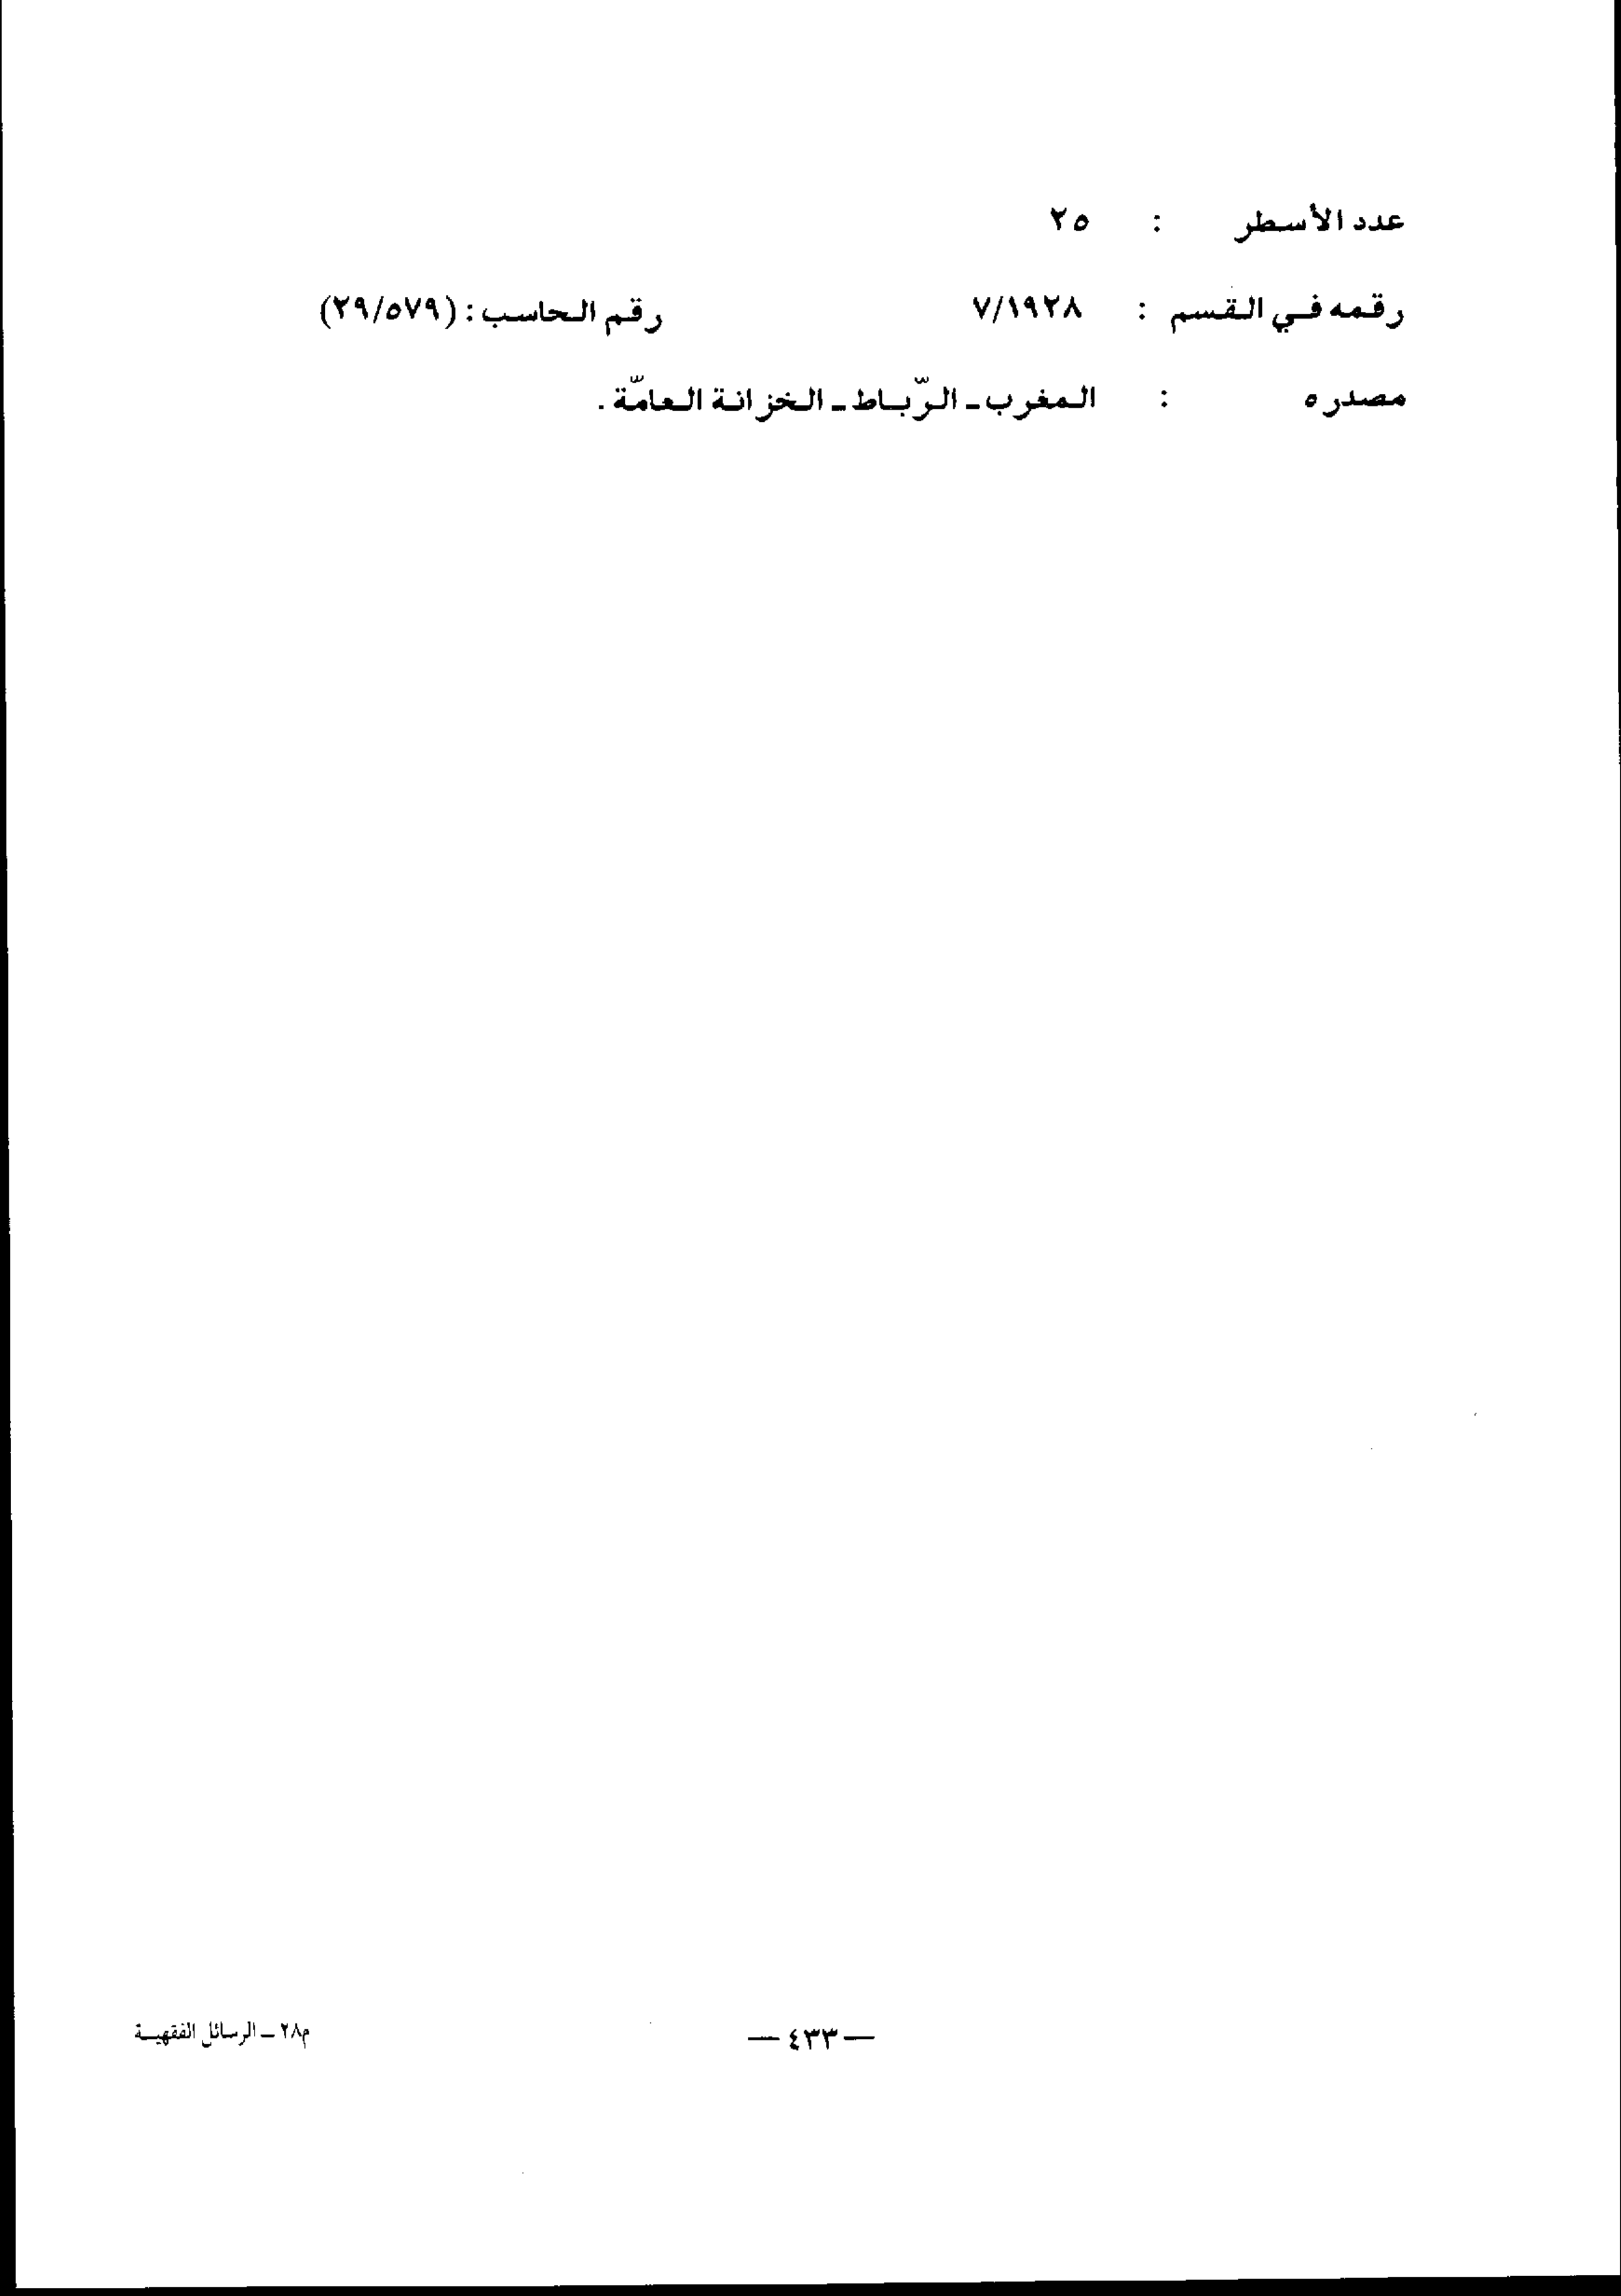 عدد الأسطر : ٢٥
رقمه في القسم : ٧/١٩٢٨ رقم الحاسب : (٢٩/٥٧٩)
مصدره : المغرب ـ الرّباط ـ الخزانة العامّة .
— ٤٣٣ —
م٢٨ ـ الرسائل الفقهية